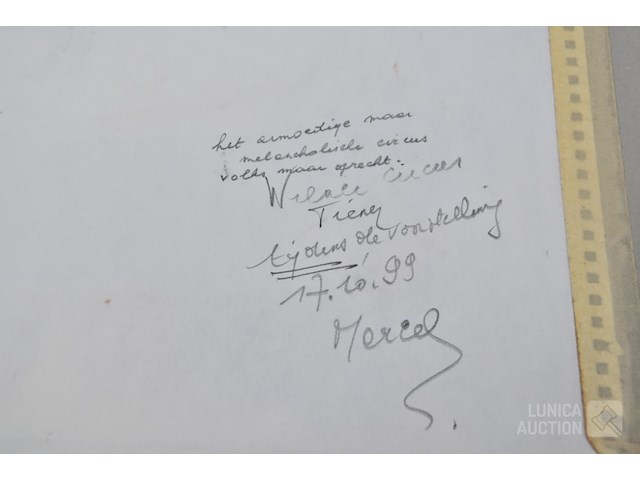 het armoedige maar
melancholische circus
volks maar oprecht:
Circus
Tienen
tijdens de voorstelling
17.10.99
Marcel
LUNICA
AUCTION